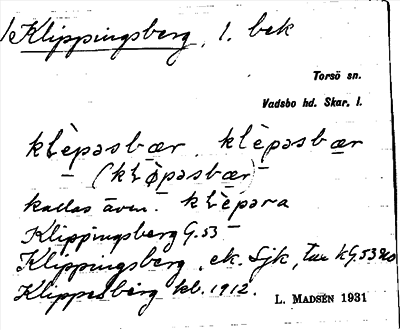 Klippingsberg, 1. bek
Torsö sn.
Vadsbo hd. Skar. l.
kLèpəsbær, klèpəsbær
(kLø̀pəsbær)
kallas även: kLèpəra
Klippingsberg G.53
Klippingsberg, ek. Sjk,
Klippesberg kb. 1912.
L. MADSÉN 1931